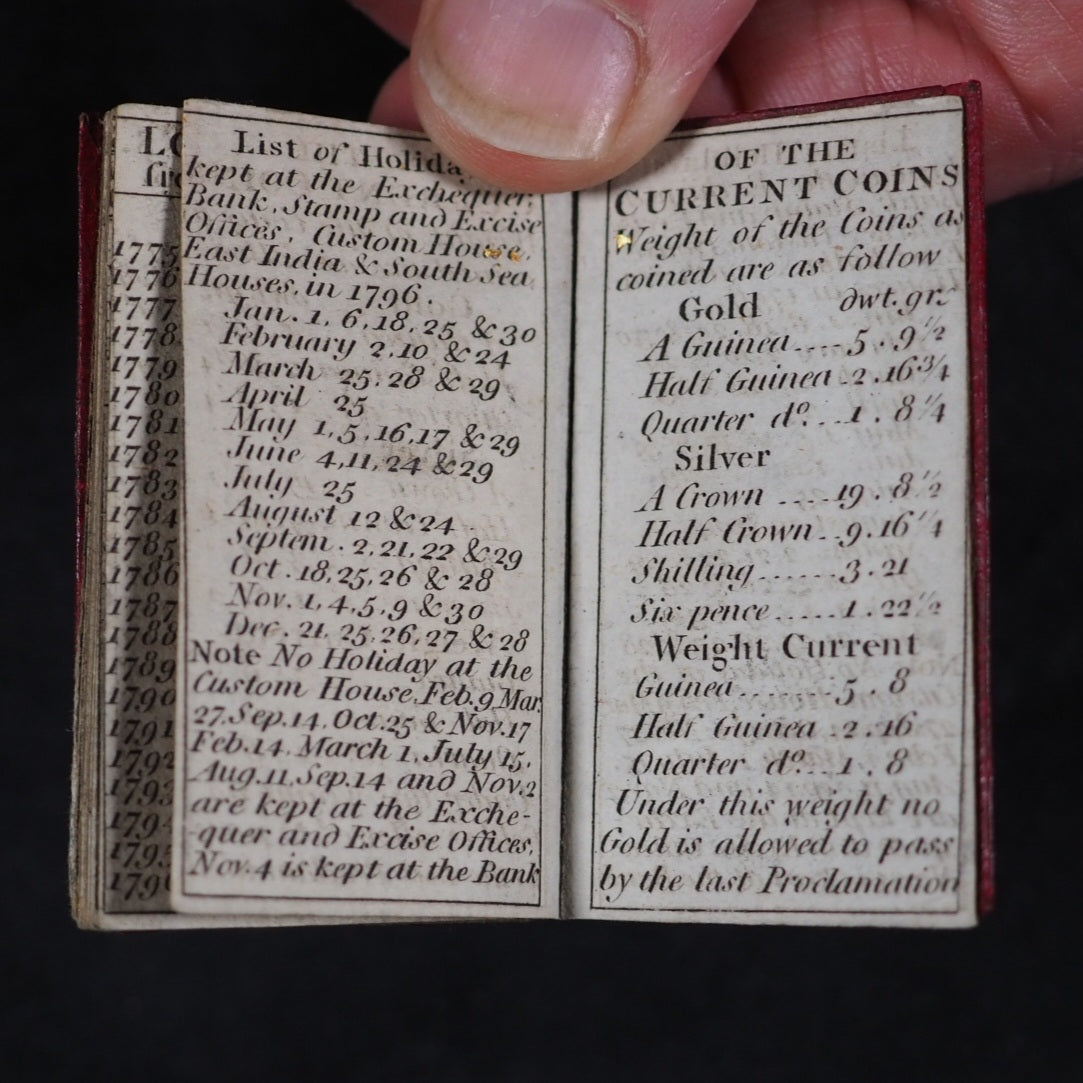 LO
1775
1776
1777
1778
1779
1780
1781
1782
1783
1784
1785
1786
1787
1788
1789
1790
1791
1792
1793
179
1795
179
List of Holida
kept at the Exchequer,
Bank, Stamp and Excise
Offices, Custom House,
East India & South Sea
Houses, in 1796.
Jan. 1, 6, 18, 25 & 30
February 2, 10 & 24
March 25, 28 & 29
April 25
May 1, 5, 16, 17 & 29
June 4, 11, 24 & 29
July 25
August 12 & 24
Septem. 2, 21, 22 & 29
Oct. 18, 25, 26 & 28
Nov. 1, 4, 5, 9 & 30
Dec. 21, 25, 26, 27 & 28
Note No Holiday at the
Custom House, Feb. 9 Mar.
27. Sep. 14. Oct. 25 & Nov. 17
Feb. 14. March 1, July 15,
Aug. 11. Sep. 14 and Nov. 2
are kept at the Exche-
-quer and Excise Offices,
Nov. 4 is kept at the Bank
OF THE
CURRENT COINS
Weight of the Coins as
coined are as follow
Gold dwt. grs
A Guinea....5 . 9 1/2
Half Guinea .2 . 16 3/4
Quarter do...1 . 8 1/4
Silver
A Crown ....19 . 8 1/2
Half Crown ..9 . 16 1/4
Shilling.......3 . 21
Six pence.....1 . 22 1/2
Weight Current
Guinea........5 . 8
Half Guinea .2 . 16
Quarter do...1 . 8
Under this weight no
Gold is allowed to pass
by the last Proclamation